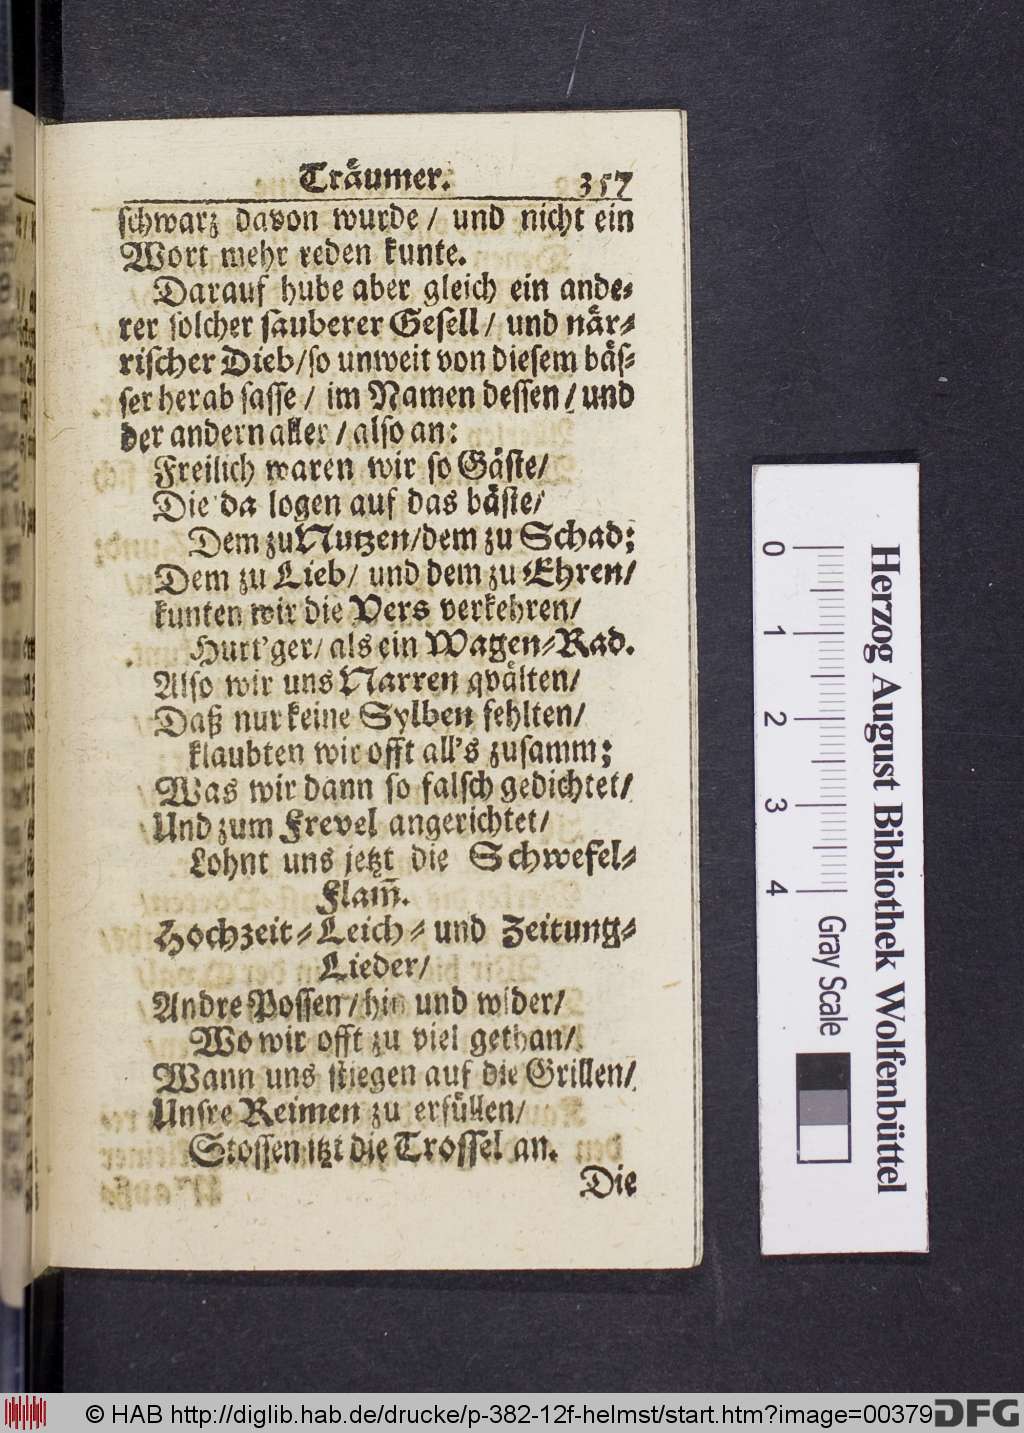 Träumer. 357
schwarz davon wurde / und nicht ein
Wort mehr reden kunte.
Darauf hube aber gleich ein ande-
rer solcher sauberer Gesell / und när-
rischer Dieb/so unweit von diesem bäs-
ser herab sasse / im Namen dessen / und
der andern aller / also an:
Freilich waren wir so Gäste/
Die da logen auf das bäste/
Dem zu Nutzen/dem zu Schad;
Dem zu Lieb/ und dem zu Ehren/
kunten wir die Vers verkehren/
Hurt'ger/ als ein Wagen-Rad.
Also wir uns Narren qvälten/
Daß nur keine Sylben fehlten/
klaubten wir offt all's zusamm;
Was wir dann so falsch gedichtet/
Und zum Frevel angerichtet/
Lohnt uns jetzt die Schwefel-
Flam̅.
Hochzeit- Leich- und Zeitung-
Lieder/
Andre Possen/hin und wider/
Wo wir offt zu viel gethan/
Wann uns stiegen auf die Grillen/
Unsre Reimen zu erfüllen/
Stossen itzt die Trossel an.
Die
0 1 2 3 4
Gray Scale
Herzog August Bibliothek Wolfenbüttel
© HAB http://diglib.hab.de/drucke/p-382-12f-helmst/start.htm?image=00379
DFG